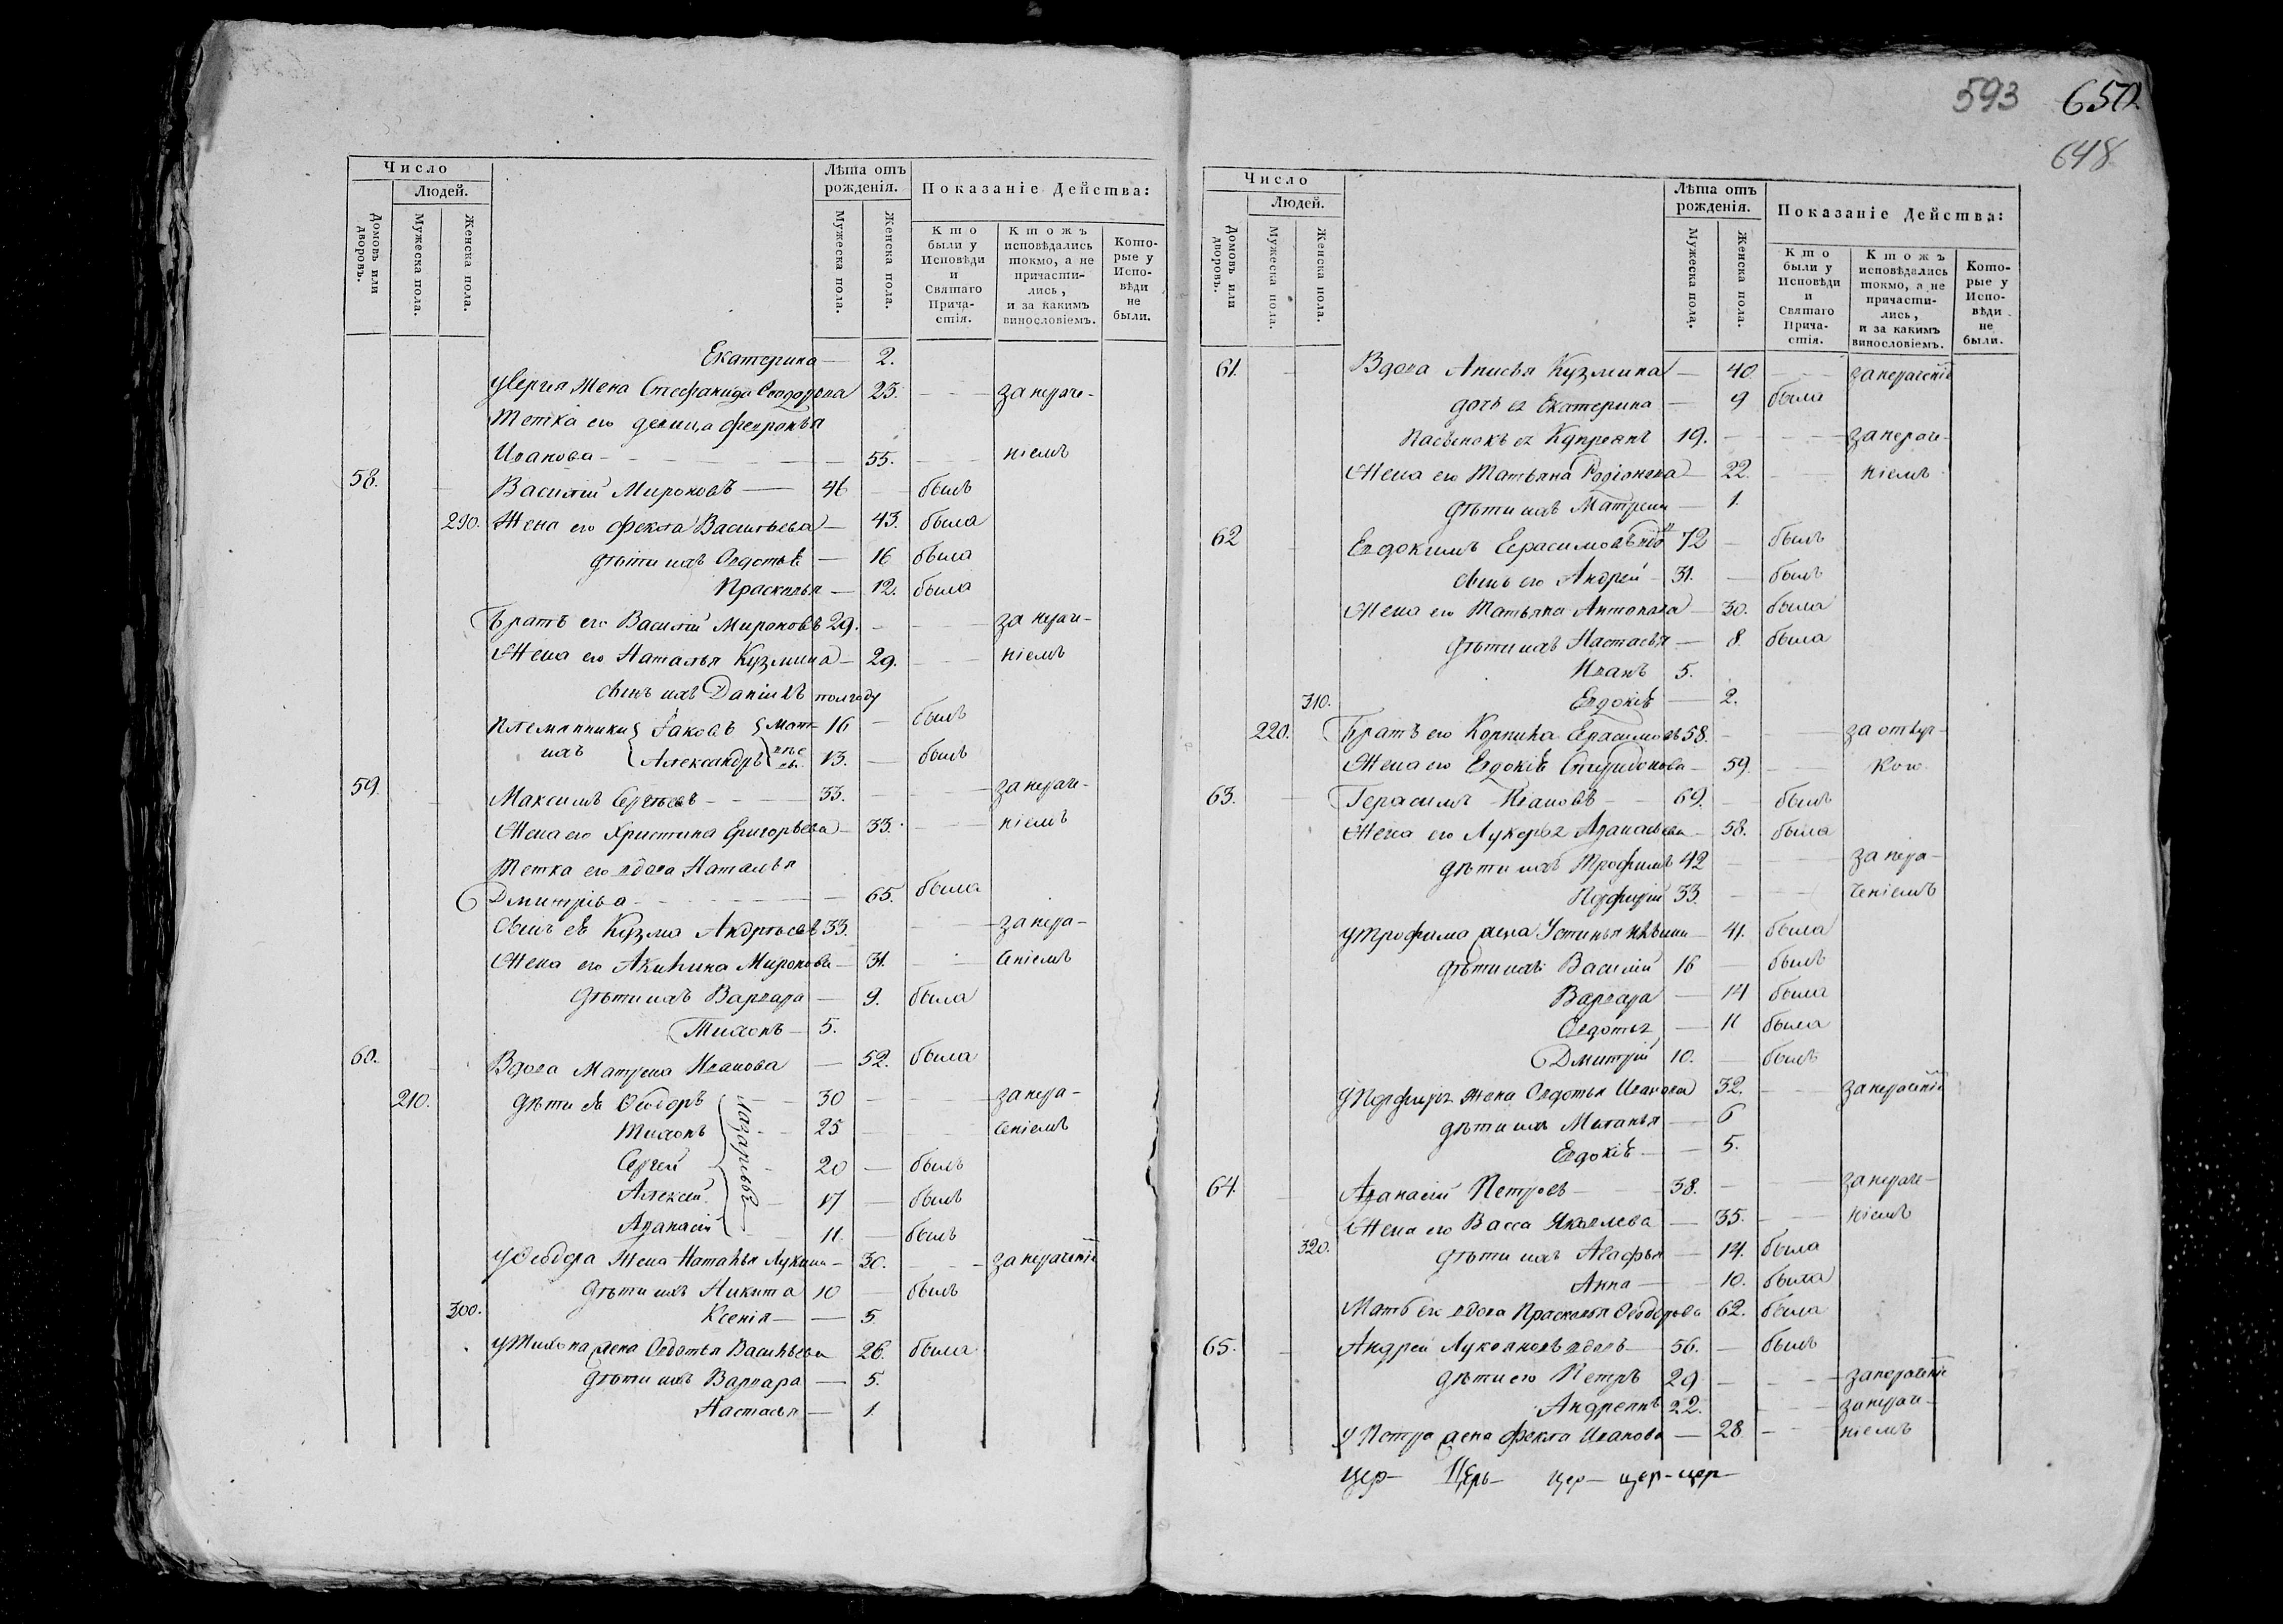 593 650
648
Число
Людей.
Домовъ или дворовъ.
Мужеска пола.
Женска пола.
Лѣта отъ рожденія.
Мужеска пола.
Женска пола.
Показаніе Действа:
Кто были у Исповѣди и Святаго Прича-стія.
Ктожъ исповѣдались токмо, а не причасти-лись, и за какимъ винословіемъ.
Кото-рые у Испо-вѣди не были.
Екатерина — 2.
У Сергия жена Стефанида 23. за нераче-
Тетка его девица Феврон��я
Иванова — 55. ніемъ
58. Василій Мироновъ — 46 — былъ
290. Жена его Фекла Васильева — 43. была
дѣти ихъ Овдотья — 16 была
Прасковья — 12. была
Братъ его Василій Мироновъ 29. за нераче-
Жена его Наталья Кузмина — 29. ніемъ
сынъ ихъ Даніилъ полгоду
племянники Іаковъ 16 — былъ
ихъ Александръ 13. — былъ
59. Максимъ Сергѣевъ 33. за нераче-
Жена его Христина Григорьева — 33. ніемъ
Тетка его вдова Наталья
Дмитріева — 65. была
Сынъ ея Кузма Андреевъ 33. за нера-
Жена его Акилина Миронова — 31. ченіемъ
дѣти ихъ Варвара — 9. была
Тихонъ — 5.
60. Вдова Матрена Иванова — 52. была
210. дѣти ея Ѳеодоръ 30 за нера-
Тихонъ 25 ченіемъ
Сергей 20 — былъ
Алексей 17 — былъ
Афанасій 11. — былъ
Лазаревы
У Ѳеодора жена Наталья Лукина — 30. за нераченіе
дѣти ихъ Никита 10 — былъ
300. Ксенія — 5
У Тихона жена Овдотья Васильева 26. была
дѣти ихъ Варвара — 5.
Настасья — 1.
Число
Людей.
Домовъ или дворовъ.
Мужеска пола.
Женска пола.
Лѣта отъ рожденія.
Мужеска пола.
Женска пола.
Показаніе Действа:
Кто были у Исповѣди и Святаго Прича-стія.
Ктожъ исповѣдались токмо, а не причасти-лись, и за какимъ винословіемъ.
Кото-рые у Испо-вѣди не были.
61. Вдова Анисья Кузмина — 40 за нераченіе
дочь ея Екатерина — 9 была
Пасынокъ ея Купреянъ 19. за нераче-
Жена его Татьяна Родіонова — 22. ніемъ
дѣти ихъ Матрена — 1.
62 Евдокимъ Герасимовъ 72 — былъ
сынъ его Андрей — 31. — былъ
Жена его Татьяна Антонова — 30. была
дѣти ихъ Настасья — 8. была
Иванъ 5.
310. Евдокія — 2.
220. Братъ его Корнила Герасимовъ 58. за отлуч-
Жена его Евдокія Спиридонова — 59. кою
63. Герасимъ Ивановъ — 69. — былъ
Жена его Лукерья Афанасьева — 58. была
дѣти ихъ Трофимъ 42 за нера-
Порфирій 33. ченіемъ
У Трофима жена Устинья 41. была
дѣти ихъ Василій 16 — былъ
Варвара — 14 была
Овдотья — 11 была
Дмитрій 10. — былъ
У Порфирія жена Овдотья Иванова 32. за нераченіе
дѣти ихъ Миланья — 6
Евдокія — 5.
64. Афанасій Петровъ — 38. за нераче-
Жена его Васса Яковлева — 35. ніемъ
320. дѣти ихъ Агафья — 14. была
Анна — 10. была
Мать его вдова Прасковья Ѳеодорова 62. была
65. Андрей Лукояновъ вдовъ — 56. — былъ
дѣти его Петръ 29 за нераченіе
Андреянъ 22. за нераче-
У Петра жена Фекла Иванова — 28 ніемъ